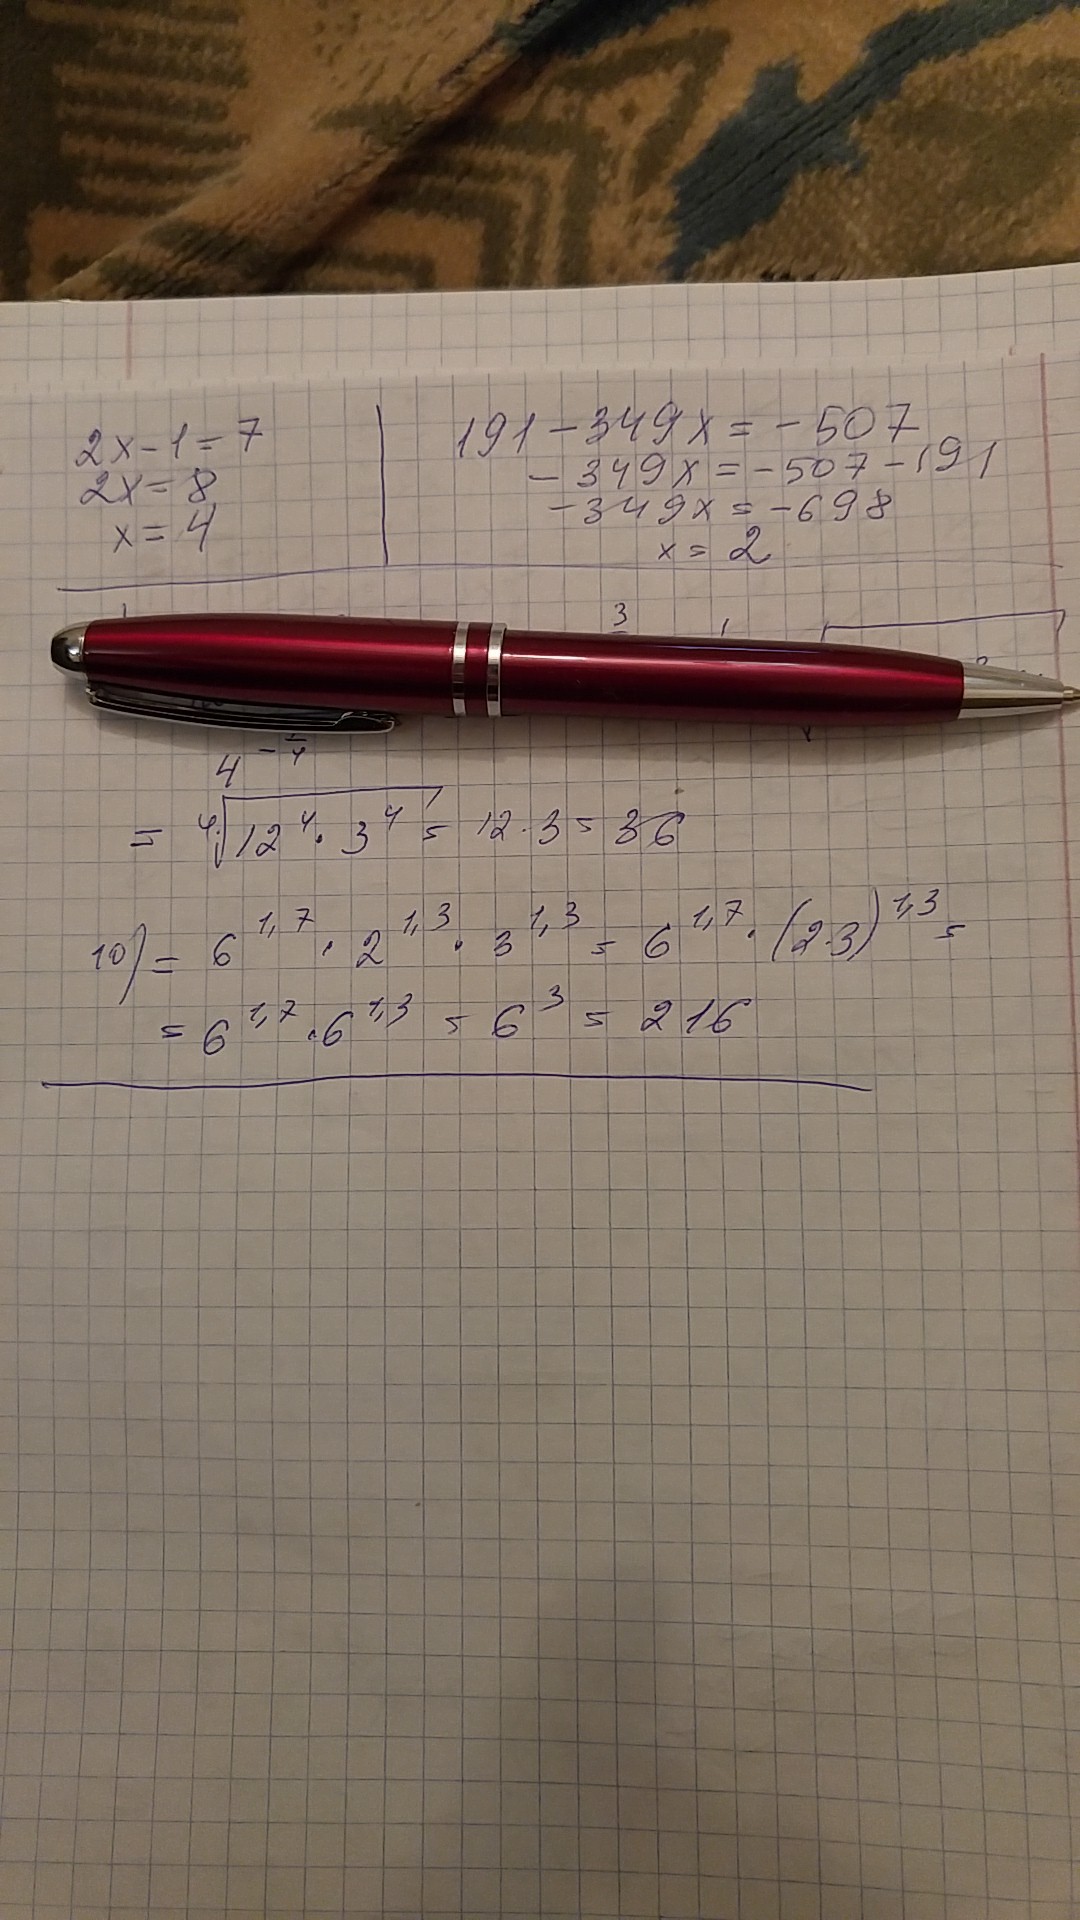 2x-1=7
2x=8
x=4
191-349x=-507
-349x=-507-191
-349x=-698
x=2
4^(-1/4)
= ⁴√(12⁴·3⁴) = 12·3=36
10) = 6^1,7 · 2^1,3 · 3^1,3 = 6^1,7 · (2·3)^1,3 =
= 6^1,7 · 6^1,3 = 6^3 = 216